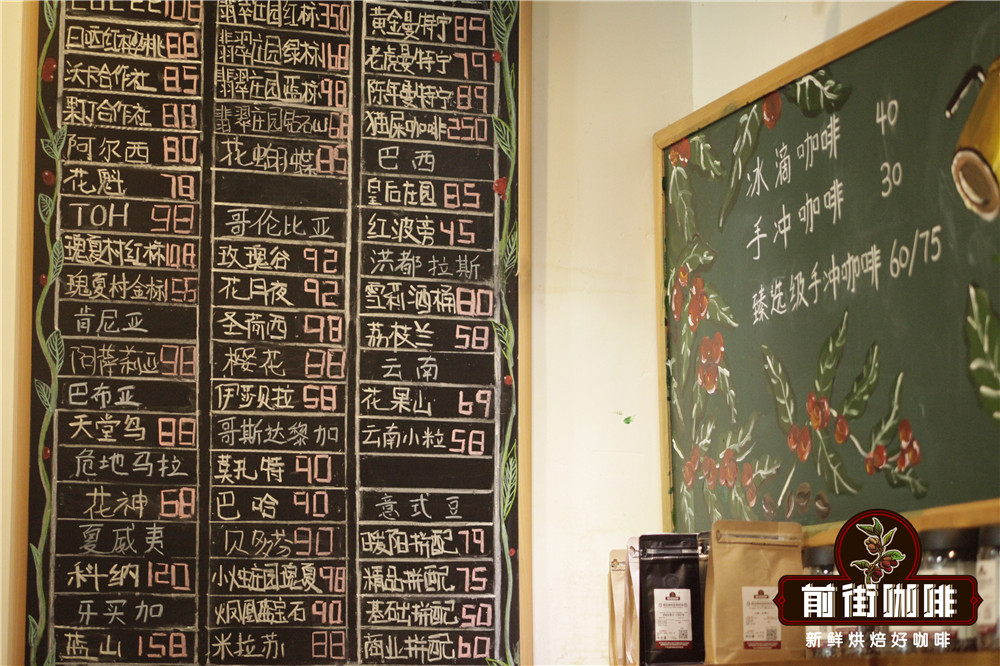 108
日晒红樱桃 88
沃卡合作社 85
果丁合作社 88
阿尔西 80
花魁 78
TOH 98
瑰夏村红标 108
瑰夏村金标 155
肯尼亚
阳萨莉亚 98
巴布亚
天堂鸟 88
危地马拉
花神 68
夏威夷
科纳 120
牙买加
蓝山 158
翡翠庄园红标 350
翡翠庄园绿标 168
翡翠庄园蓝标 98
翡翠庄园钻石山 68
花蝴蝶 85
哥伦比亚
玫瑰谷 92
花月夜 92
圣荷西 98
樱花 88
伊莎贝拉 58
哥斯达黎加
莫扎特 90
巴哈 90
贝多芬 90
小烛庄园瑰夏 98
火凤凰蓝宝石 90
米拉苏 88
黄金曼特宁 89
老虎曼特宁 79
陈年曼特宁 89
猫屎咖啡 250
巴西
皇后庄园 85
红波旁 45
洪都拉斯
雪莉酒桶 80
荔枝兰 58
云南
花果山 69
云南小粒 58
意式豆
暖阳拼配 79
精品拼配 75
基础拼配 50
商业拼配 60
冰滴咖啡 40
手冲咖啡 30
臻选级手冲咖啡 60/75
前街咖啡
新鲜烘焙好咖啡